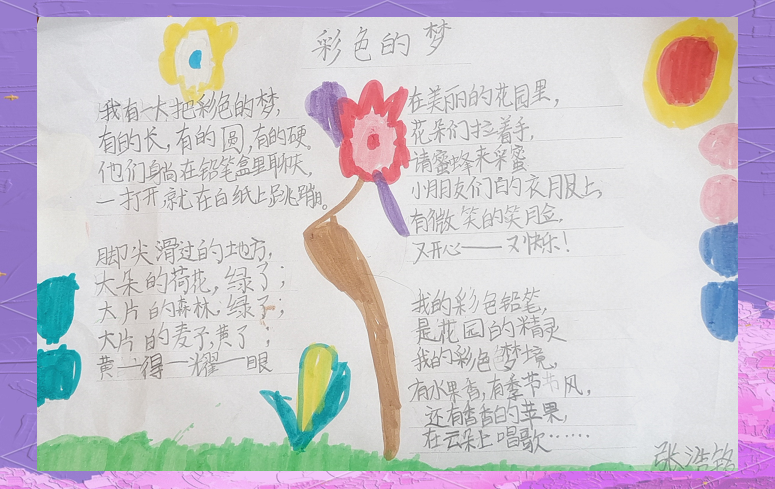 彩色的梦
我有一大把彩色的梦,
有的长,有的圆,有的硬。
他们躺在铅笔盒里聊天,
一打开,就在白纸上跳蹦。
脚尖滑过的地方,
大朵的荷花,绿了;
大片的森林,绿了;
大片的麦子,黄了;
黄——得——耀——眼
在美丽的花园里,
花朵们拉着手,
请蜜蜂来采蜜
小朋友们的衣服上,
有微笑的笑脸,
又开心——又快乐!
我的彩色铅笔,
是花园的精灵
我的彩色梦境,
有水果香,有季节风,
还有香香的苹果,
在云朵上唱歌……
张浩铭